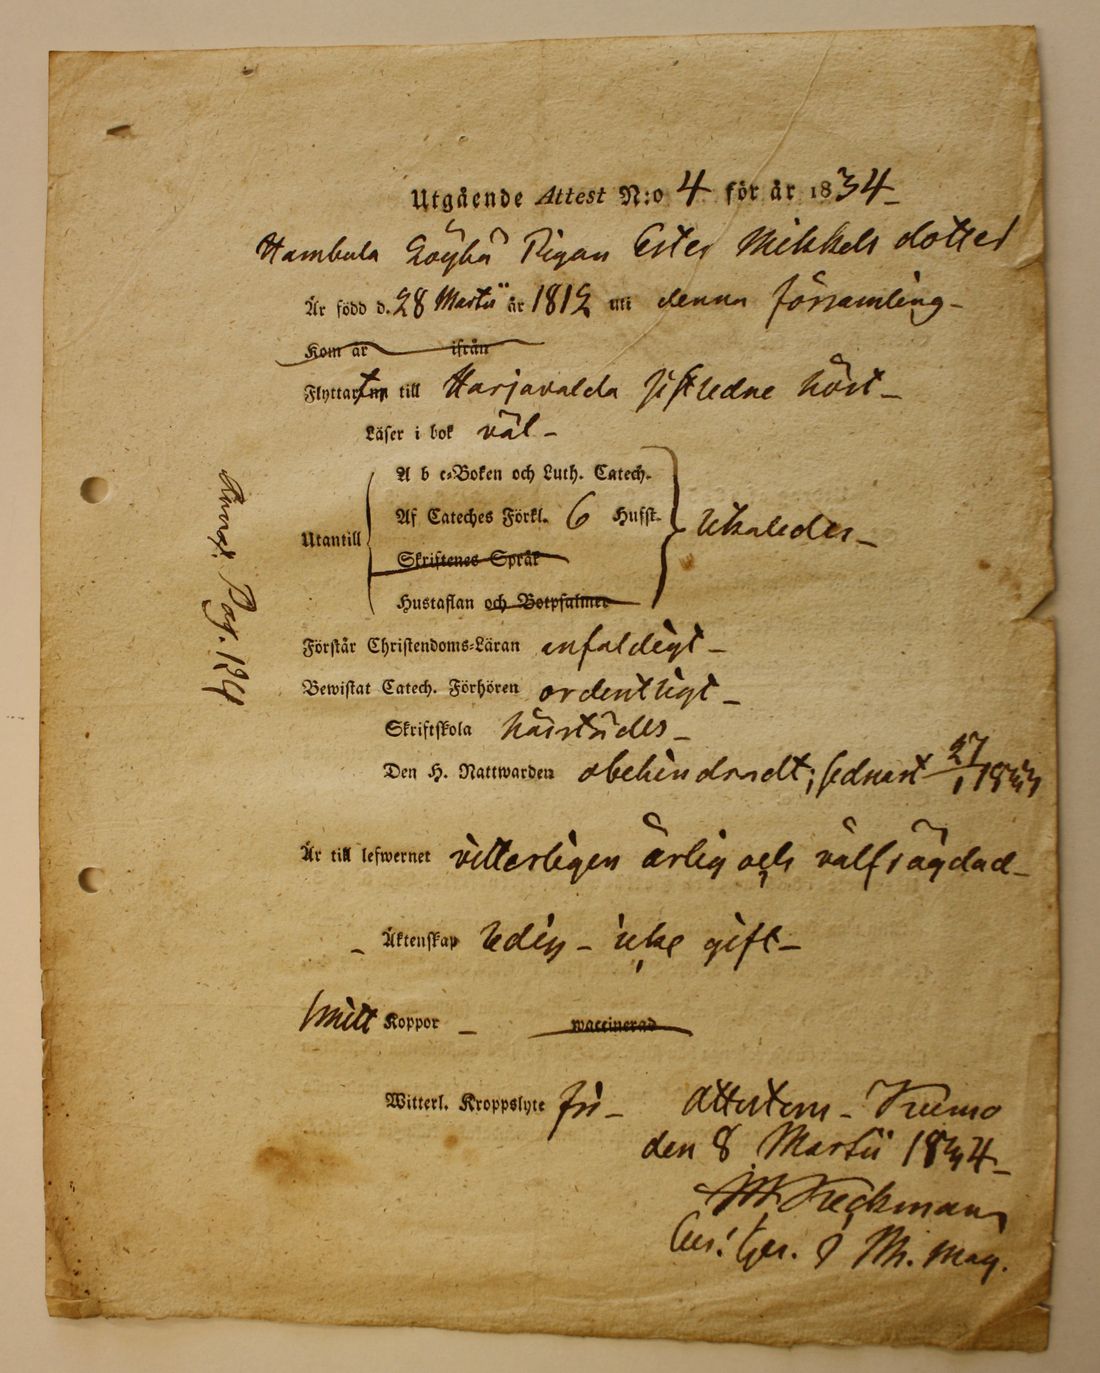 Utgående Attest N:o 4 för år 1834
Hambula Löykä Pigan Ester Mikkels dotter
Är född d. 28 Martii år 1812 uti denna församling
Kom år ifrån
Flyttar till Harjavalda sistledne höst
Läser i bok väl
A b c-Boken och Luth. Catech.
Af Cateches Förkl. 6 Hufst.
Utantill
Skriftenes Språk
Hustaflan och Botpsalmer
Förstår Christendoms-Läran enfaldigt
Bewistat Catech. Förhören ordentligt
Skriftskola härstädes
Den H. Nattwarden obehindradt; sednast 27/1 1833
Är till lefwernet vitterligen ärlig och välfrägdad
Äktenskap ledig - icke gift
haft Koppor - waccinerad
Witterl. Kroppslyte fri
Attesterar - Kumo
den 8 Martii 1834
Pag. 124